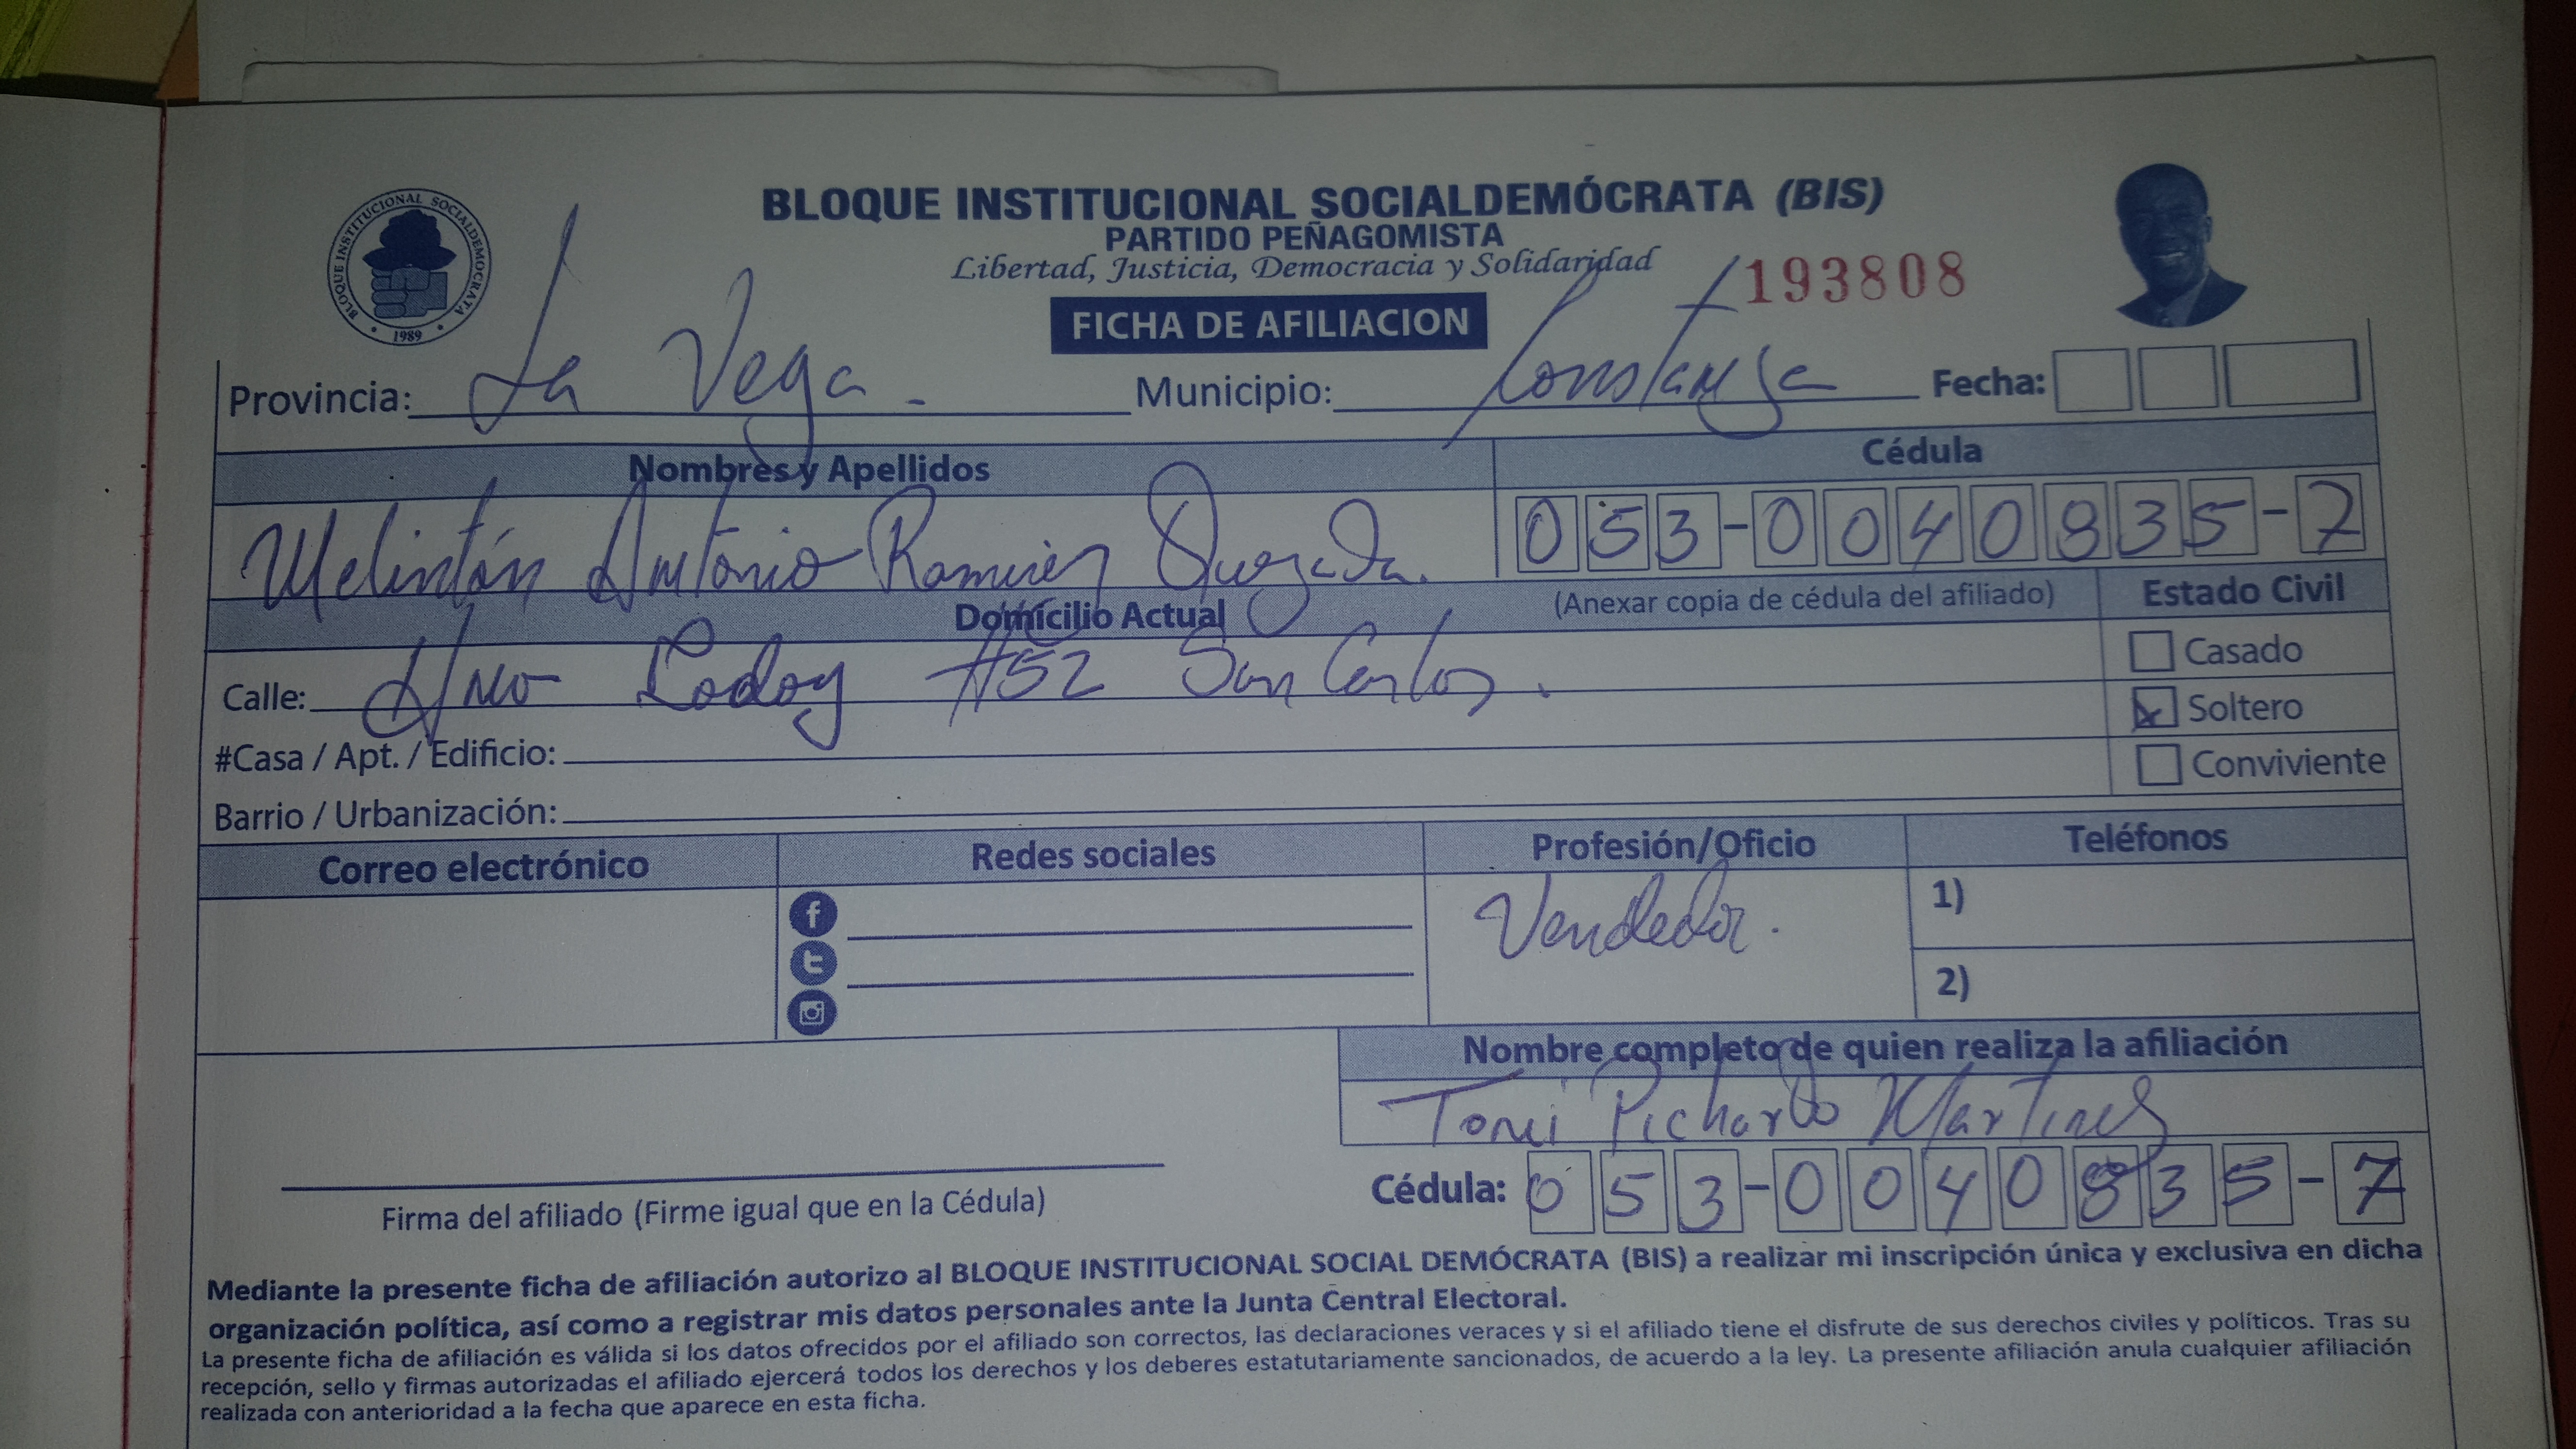 BLOQUE INSTITUCIONAL SOCIALDEMOCRATA
1989
BLOQUE INSTITUCIONAL SOCIALDEMÓCRATA (BIS)
PARTIDO PEÑAGOMISTA
Libertad, Justicia, Democracia y Solidaridad
193808
FICHA DE AFILIACION
Provincia: La Vega. Municipio: Constanza Fecha:
Nombres y Apellidos Cédula
Welintón Antonio Ramirez Quezada. 053-0040835-7
Domicilio Actual (Anexar copia de cédula del afiliado) Estado Civil
Calle: #52 San Carlos.
Casado
Soltero
#Casa / Apt. / Edificio:
Conviviente
Barrio / Urbanización:
Correo electrónico Redes sociales Profesión/Oficio Teléfonos
Vendedor.
1)
2)
Nombre completo de quien realiza la afiliación
Tomi Pichardo Martines
Cédula: 053-0040835-7
Firma del afiliado (Firme igual que en la Cédula)
Mediante la presente ficha de afiliación autorizo al BLOQUE INSTITUCIONAL SOCIAL DEMÓCRATA (BIS) a realizar mi inscripción única y exclusiva en dicha
organización política, así como a registrar mis datos personales ante la Junta Central Electoral.
La presente ficha de afiliación es válida si los datos ofrecidos por el afiliado son correctos, las declaraciones veraces y si el afiliado tiene el disfrute de sus derechos civiles y políticos. Tras su
recepción, sello y firmas autorizadas el afiliado ejercerá todos los derechos y los deberes estatutariamente sancionados, de acuerdo a la ley. La presente afiliación anula cualquier afiliación
realizada con anterioridad a la fecha que aparece en esta ficha.